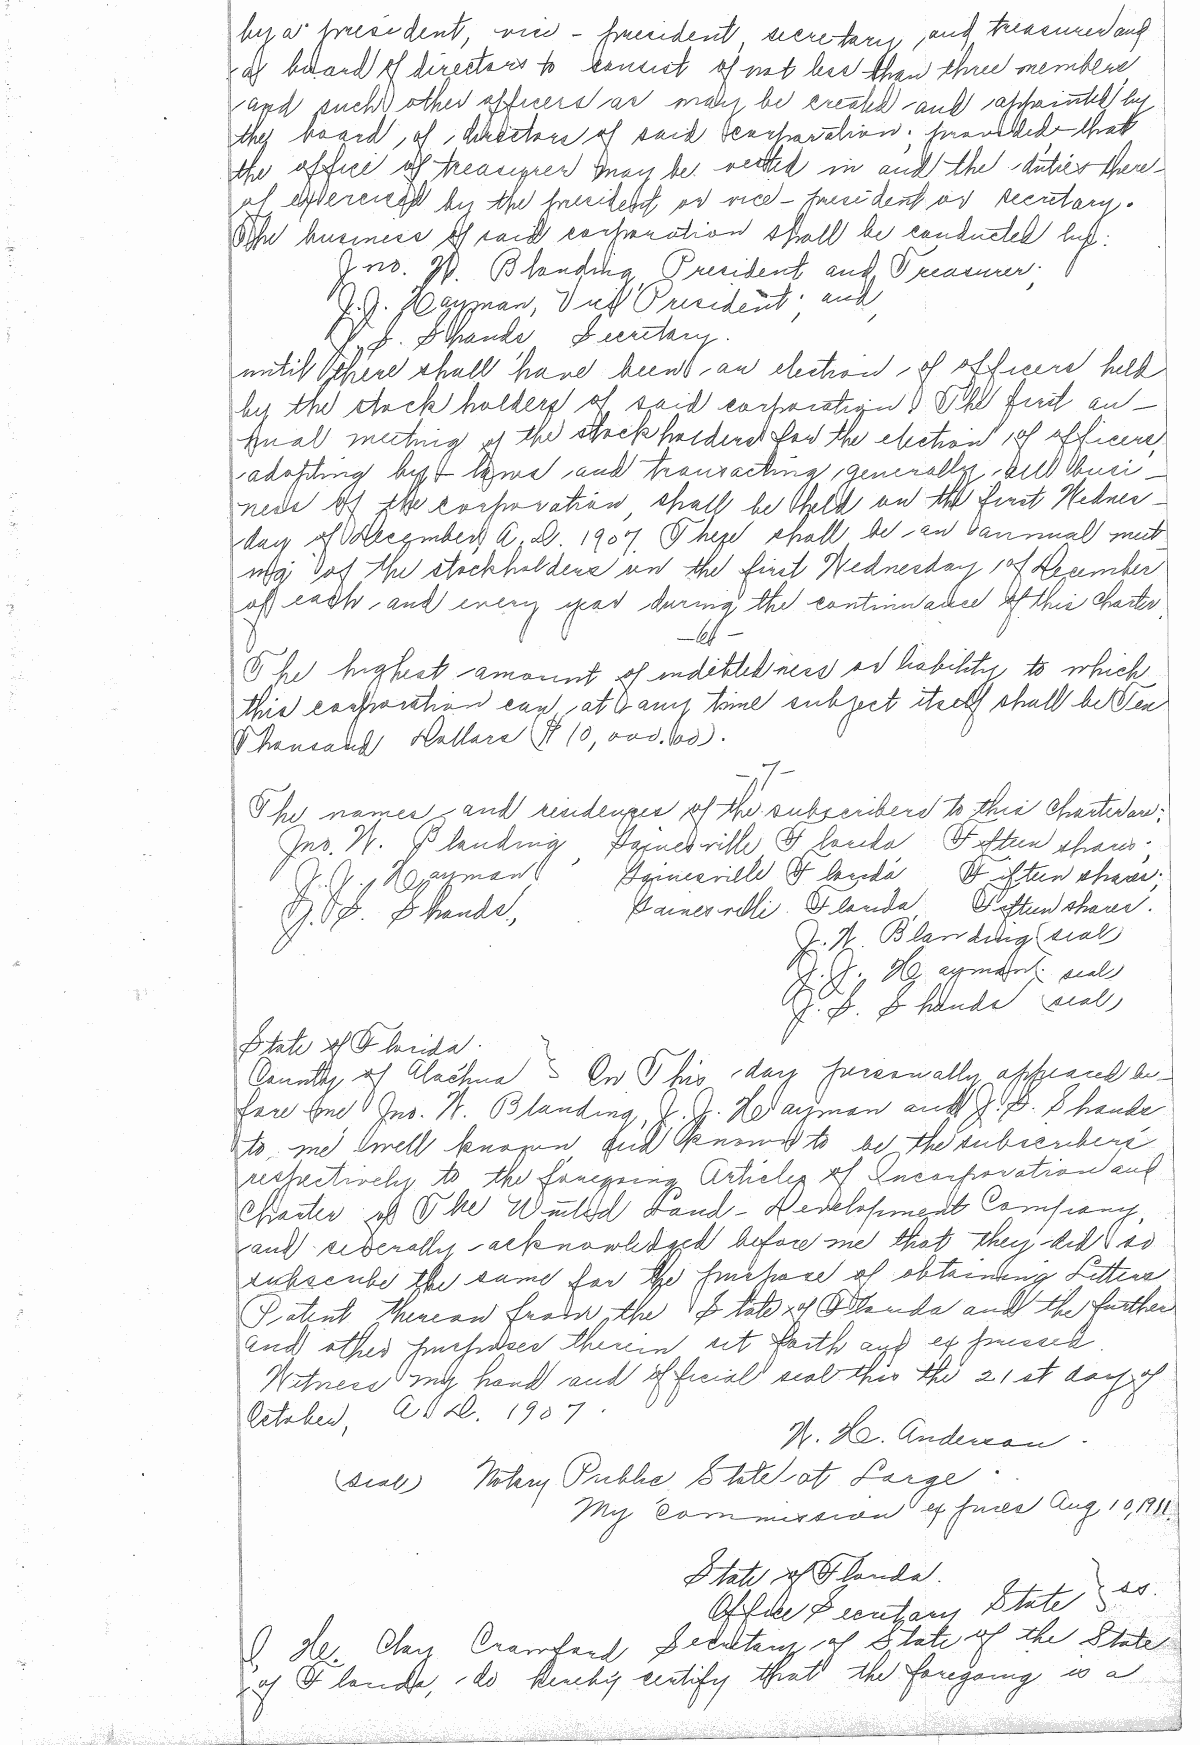 by a president, vice-president, secretary, and treasurer and
a board of directors to consist of not less than three members,
and such other officers as may be created and appointed by
the board of directors of said corporation; provided that
the office of treasurer may be vested in and the duties there-
of exercised by the president or vice-president or secretary.
The business of said corporation shall be conducted by:
Jno. W. Blanding, President and Treasurer;
J.J. Hayman, Vice President; and,
J. S. Shands Secretary.
until there shall have been an election of officers held
by the stockholders of said corporation. The first an-
nual meeting of the stockholders for the election of officers,
adopting by-laws and transacting generally all busi-
ness of the corporation, shall be held on the first Wednes-
day of December, A.D. 1907. There shall be an annual meet
ing of the stockholders on the first Wednesday of December
of each and every year during the continuance of this Charter.
-6-
The highest amount of indebtedness or liability to which
this corporation can at any time subject itself shall be Ten
Thousand Dollars ($10,000.00).
-7-
The names and residences of the subscribers to this Charter are:
Jno. W. Blanding, Gainesville Florida Fifteen shares;
J. J. Hayman, Gainesville Florida Fifteen shares;
J. S. Shands, Gainesville Florida, Fifteen shares.
J. W. Blanding (seal)
J. J. Hayman (seal)
J. S. Shands (seal)
State of Florida.
County of Alachua } On This day personally appeared be-
fore me Jno. W. Blanding, J. J. Hayman and J. S. Shands
to me well known and known to be the subscribers
respectively to the foregoing Articles of Incorporation and
Charter of The United Land-Development Company,
and severally acknowledged before me that they did so
subscribe the same for the purpose of obtaining Letters
Patent thereon from the State of Florida and the further
and other purposes therein set forth and expressed.
Witness my hand and official seal this the 21st day of
October, A.D. 1907.
W. H. Anderson.
(seal) Notary Public State at Large.
My Commission expires Aug 10, 1911.
State of Florida.
Office Secretary State } ss.
I H. Clay Crawford Secretary of State of the State
of Florida, do hereby certify that the foregoing is a